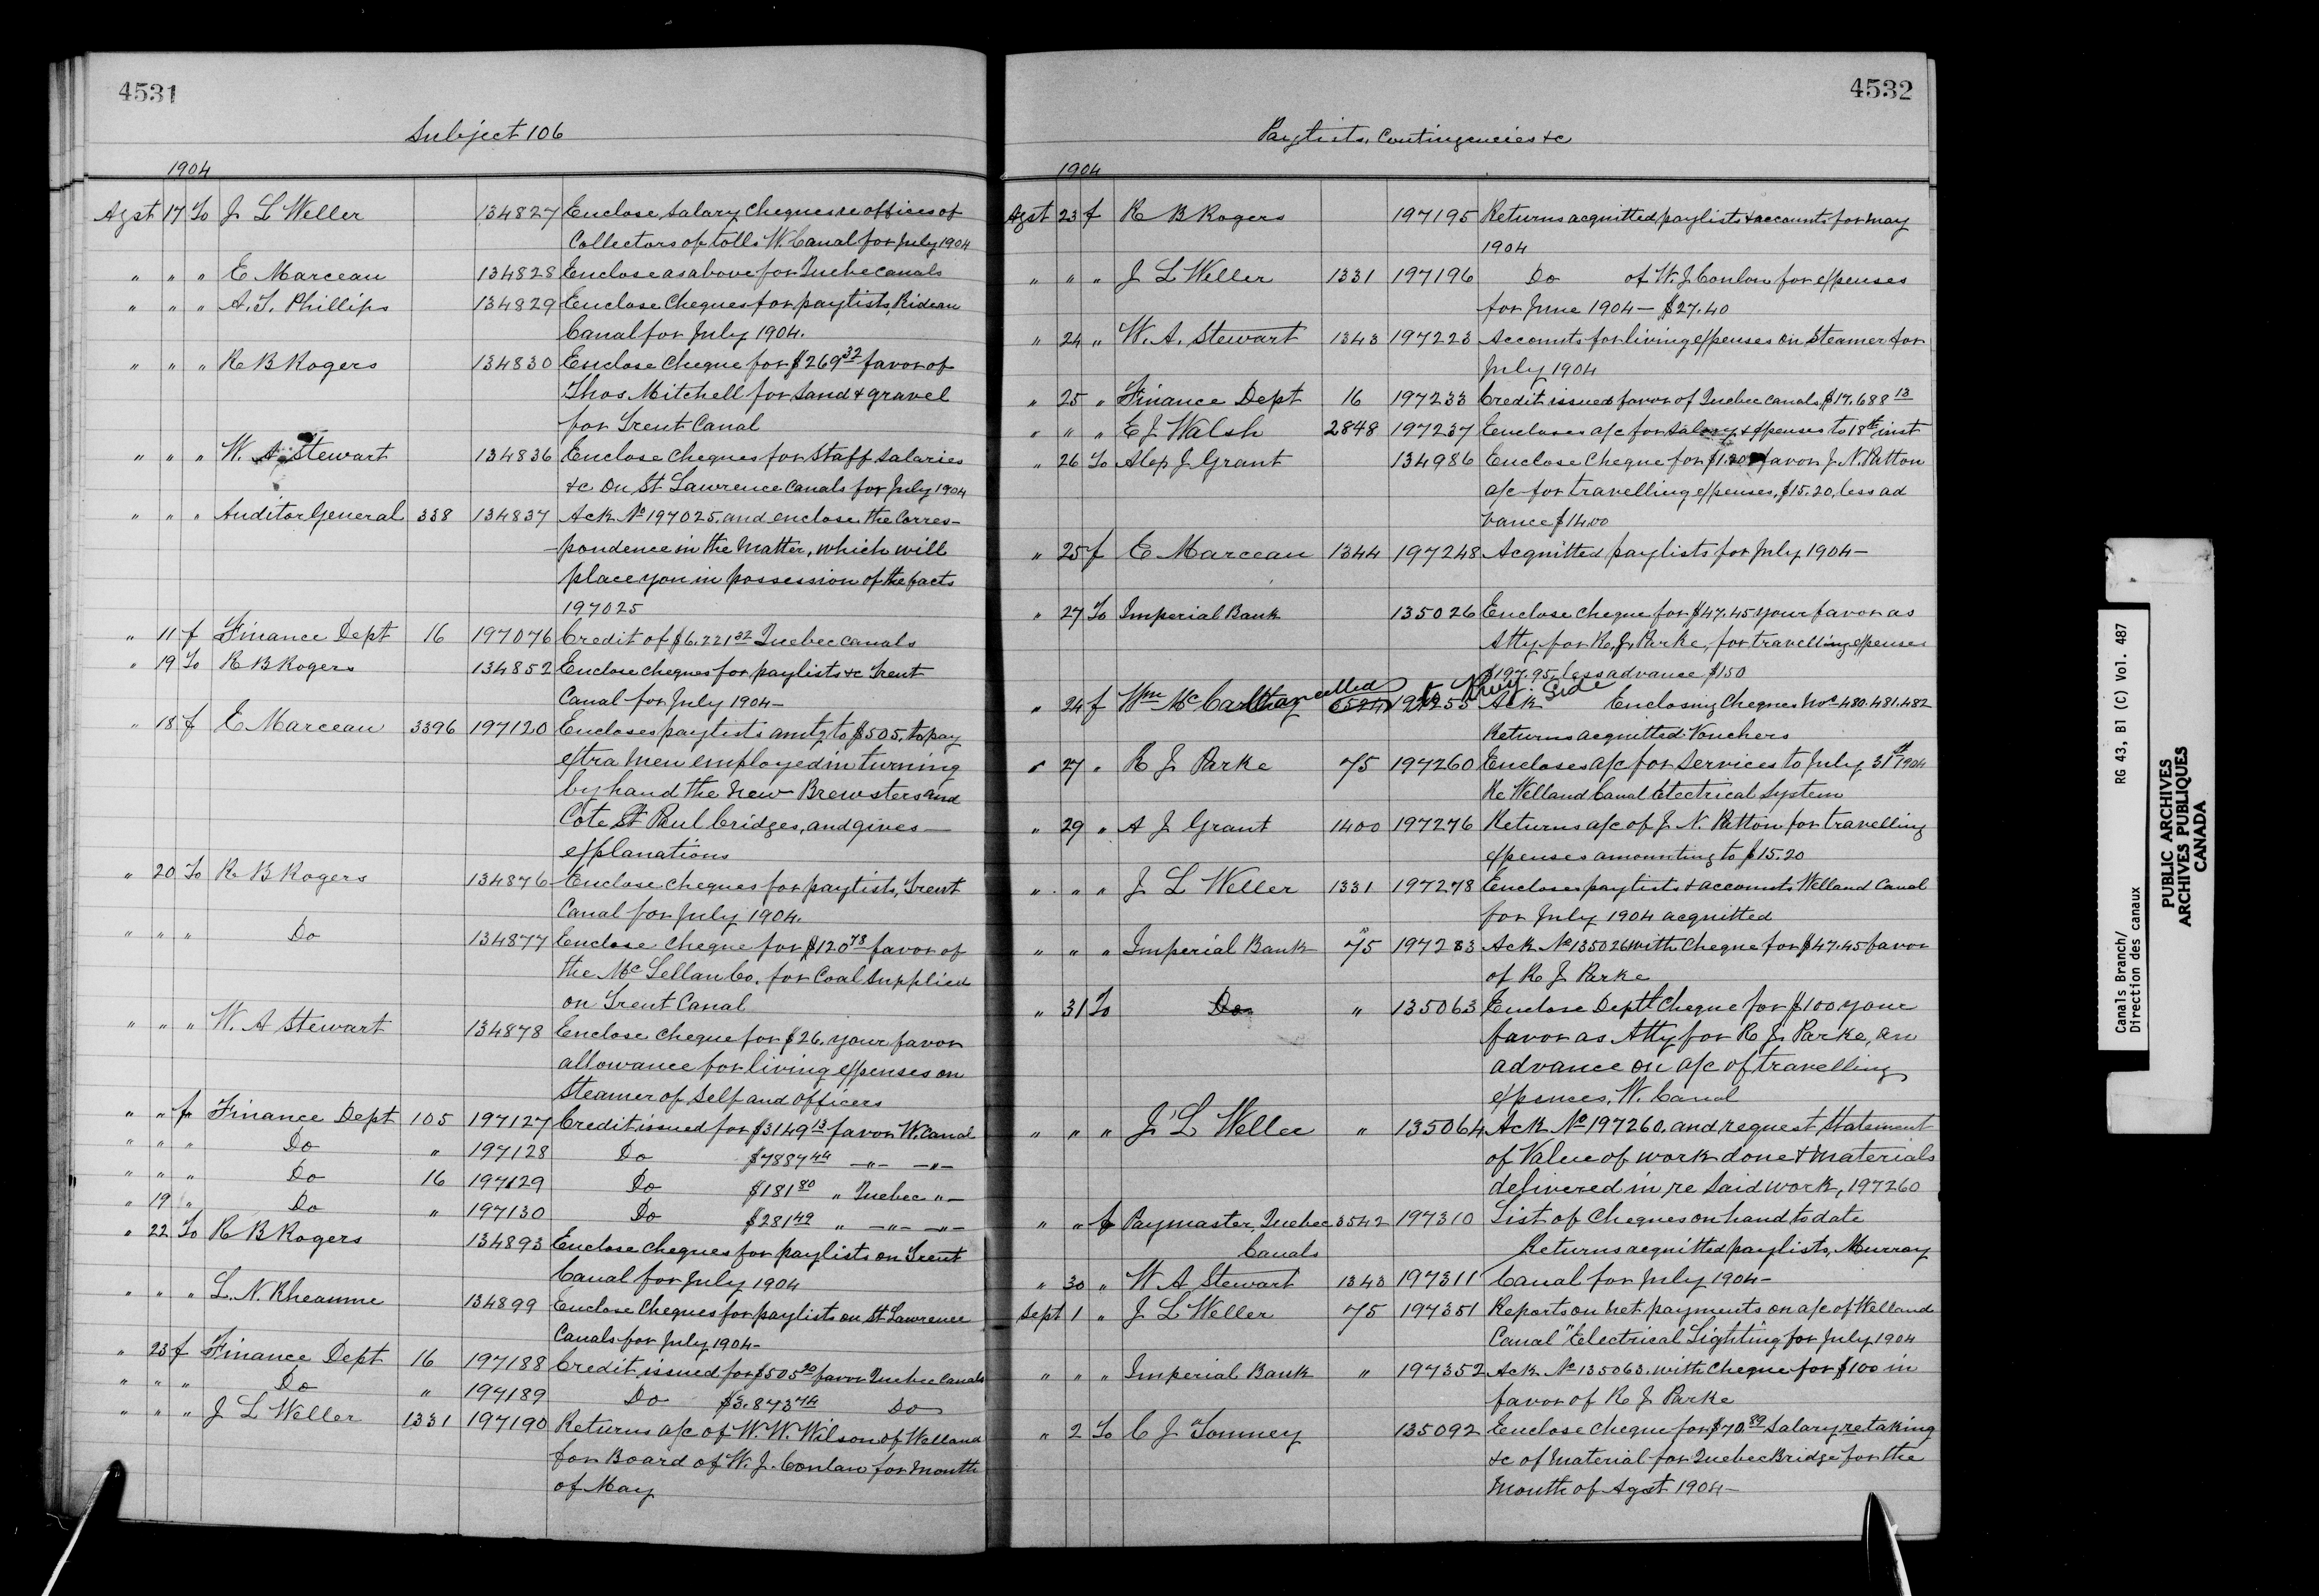 4531
Subject 106
1904
Agst 17 To J L Weller 134827 Enclose salary cheques re offices of
Collectors of tolls W. Canal for July 1904
" " " E Marceau 134828 Enclose as above for Quebec canals
" " " A. T. Phillips 134829 Enclose cheques for paylists, Rideau
Canal for July 1904.
" " " R B Rogers 134830 Enclose cheque for $269 32 favor of
Thos. Mitchell for sand & gravel
for Trent Canal
" " " W. A Stewart 134836 Enclose cheques for staff salaries
&c on St Lawrence canals for July 1904
" " " Auditor General 338 134837 Ack No 197025. and enclose the corres-
pondence in the matter, which will
place you in possession of the facts
197025
" 11 f Finance Dept 16 197076 Credit of $6.221 32 Quebec canals
" 19 To R B Rogers 134852 Enclose cheques for paylists &c Trent
Canal for July 1904-
" 18 f E Marceau 3396 197120 Encloses paylists amtg to $505. to pay
extra men employed in turning
by hand the new Brewsters and
Cote St Paul bridges, and gives
explanations
" 20 To R B Rogers 134876 Enclose cheques for paylists, Trent
Canal for July 1904.
" " " Do 134877 Enclose cheque for $120 78 favor of
the McLellan Co. for coal supplied
on Trent Canal
" " " W. A Stewart 134878 Enclose cheque for $26. your favor
allowance for living expenses on
steamer of self and officers
" " f Finance Dept 105 197127 Credit issued for $3149 13 favor W. Canal
" " " Do " 197128 Do $7887 44 -"- -"-
" " " Do 16 197129 Do $181 80 " Quebec "-
" 19 " Do " 197130 Do $281 49 " -"- -"-
" 22 To R B Rogers 134893 Enclose cheques for paylists on Trent
Canal for July 1904
" " " L. N. Rheaume 134899 Enclose cheques for paylists on St Lawrence
Canals for July 1904-
" 23 f Finance Dept 16 197188 Credit issued for $505 20 favor Quebec Canals
" " " Do " 197189 Do $3.873 74 Do
" " " J L Weller 1331 197190 Returns a/c of W. W. Wilson of Welland
for Board of W. J. Conlon for month
of May
4532
Paylists, Contingencies &c
1904
Agst 23 f R B Rogers 197195 Returns acquitted paylists & accounts for May
1904
" " " J L Weller 1331 197196 Do of W. J. Conlon for expenses
for June 1904 - $27.40
" 24 " W. A. Stewart 1343 197223 Accounts for living expenses on steamer for
July 1904
" 25 " Finance Dept 16 197233 Credit issued favor of Quebec canals, $17.688 13
" " " E J Walsh 2848 197237 Encloses a/c for salary & expenses to 18th inst
" 26 To Alex J. Grant 134986 Enclose cheque for $1.20 favor J. N. Patton
a/c for travelling expenses, $15.20, less ad
vance $14.00
" 25 f E Marceau 1344 197248 Acquitted paylists for July 1904-
" 27 To Imperial Bank 135026 Enclose cheque for $47.45 your favor as
Atty for R. J. Parke, for travelling expenses
$197.95, less advance $150
" 24 f Wm McCarthy Cancelled 197255 Ack Enclosing cheques Nos 480.481.482
Returns acquitted vouchers
" 27 " R J Parke 75 197260 Encloses a/c for services to July 31st 1904
Re Welland Canal Electrical System
" 29 " A J Grant 1400 197276 Returns a/c of J. N. Patton for travelling
expenses amounting to $15.20
" " " J L Weller 1331 197278 Encloses paylists & accounts Welland Canal
for July 1904 acquitted
" " " Imperial Bank 75 197283 Ack No 135026 with cheque for $47.45 favor
of R J Parke
" 31 To Do " 135063 Enclose Deptl cheque for $100. your
favor as Atty for R J. Parke, an
advance on a/c of travelling
expences, W. Canal
" " " J L Weller " 135064 Ack No 197260. and request statement
of value of work done & materials
delivered in re said work, 197260
" " f Paymaster, Quebec 3542 197310 List of cheques on hand to date
Canals Returns acquitted paylists, Murray
" 30 " W A Stewart 1343 197311 Canal for July 1904-
Sept 1 " J L Weller 75 197351 Reports on net payments on a/c of Welland
Canal "Electrical Lighting" for July 1904
" " " Imperial Bank " 197352 Ack No 135063. with cheque for $100 in
favor of R J Parke
" 2 To C J Tomney 135092 Enclose cheque for $70 89 salary re taking
&c of material for Quebec Bridge for the
month of Agst 1904-
Canals Branch/ RG 43, B1 (C) Vol. 487
Direction des canaux
PUBLIC ARCHIVES
ARCHIVES PUBLIQUES
CANADA